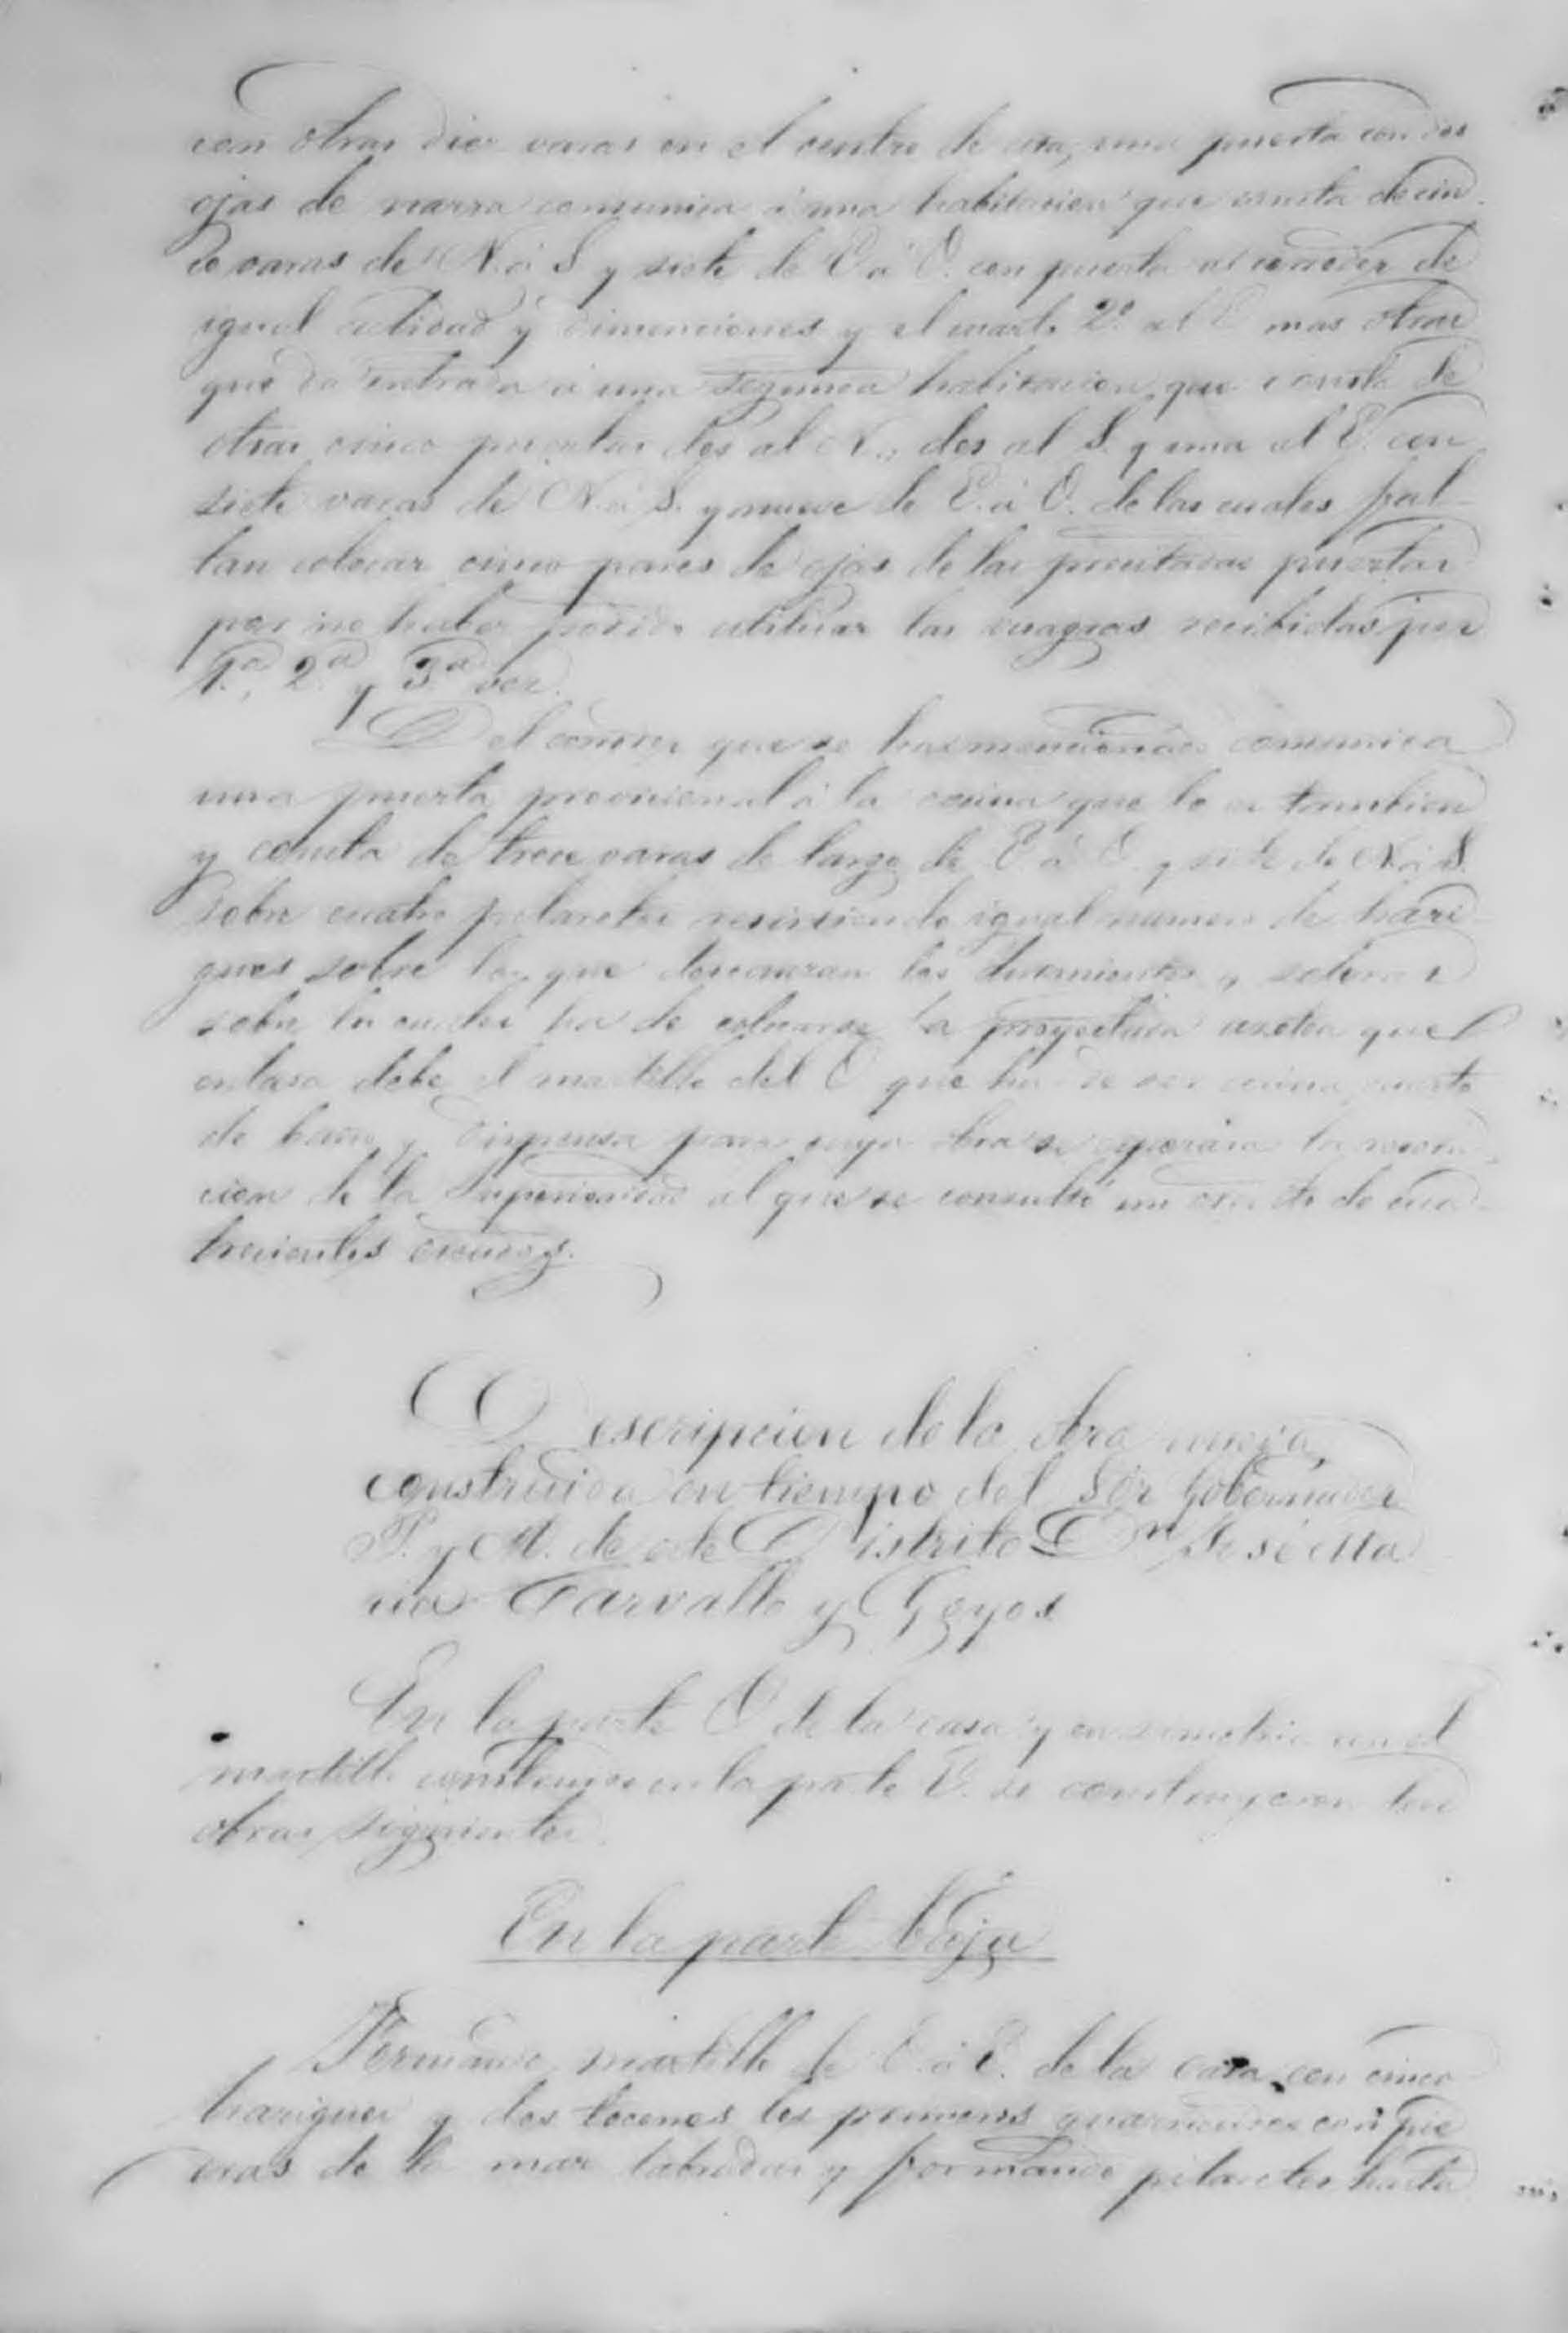 con otras diez varas en el centro de esta, una puerta con dos
ojas de narra comunica á una habitacion que consta de cin
co varas de N. á S. y siete de E. á O. con puerta al corredor de
igual calidad y dimenciones y el cuarto 2º al E. mas otras
que da entrada á una segunda habitacion, que consta de
otras cinco puertas dos al N. dos al S. y una al E. con
siete varas de N. á S. y nueve de E. á O. de las cuales fal
tan colocar cinco pares de ojas de las precitadas puertas
por no haber podido utilizar las recibidas por
1ª, 2ª y 3ª vez.
Del comedor que se ha mencionado comunica
una puerta provicional á la cocina que lo es tambien
y consta de trece varas de largo de E. á O. y siete de N. á S.
sobre cuatro pilaretes reciviendo igual numero de hari
gues sobre los que descansan los durmientes y soleras
sobre los cuales ha de colocarse la proyectada azotea que
enlasa debe el martillo del O. que ha de ser cocina, cuarto
de baño y dispensa para cuya obra se esperaba la resolu
cion de la Superioridad al que se consultó un de cua
trecientos escudos.
Descripcion de la obra nueva,
construida en tiempo del Sor. Gobernador
P. y M. de este Distrito Dn. José Ma
ria Carvallo y Goyos
En la parte O. de la casa y en simetria con el
martillo construido en la parte E. se construyeron las
obras siguientes.
En la parte baja
Formando martillo de O. á E. de la casa, con cinco
harigues y dos tocones los primeros guarnecidos con pie
dras de la mar labradas y formando pilaretes hasta